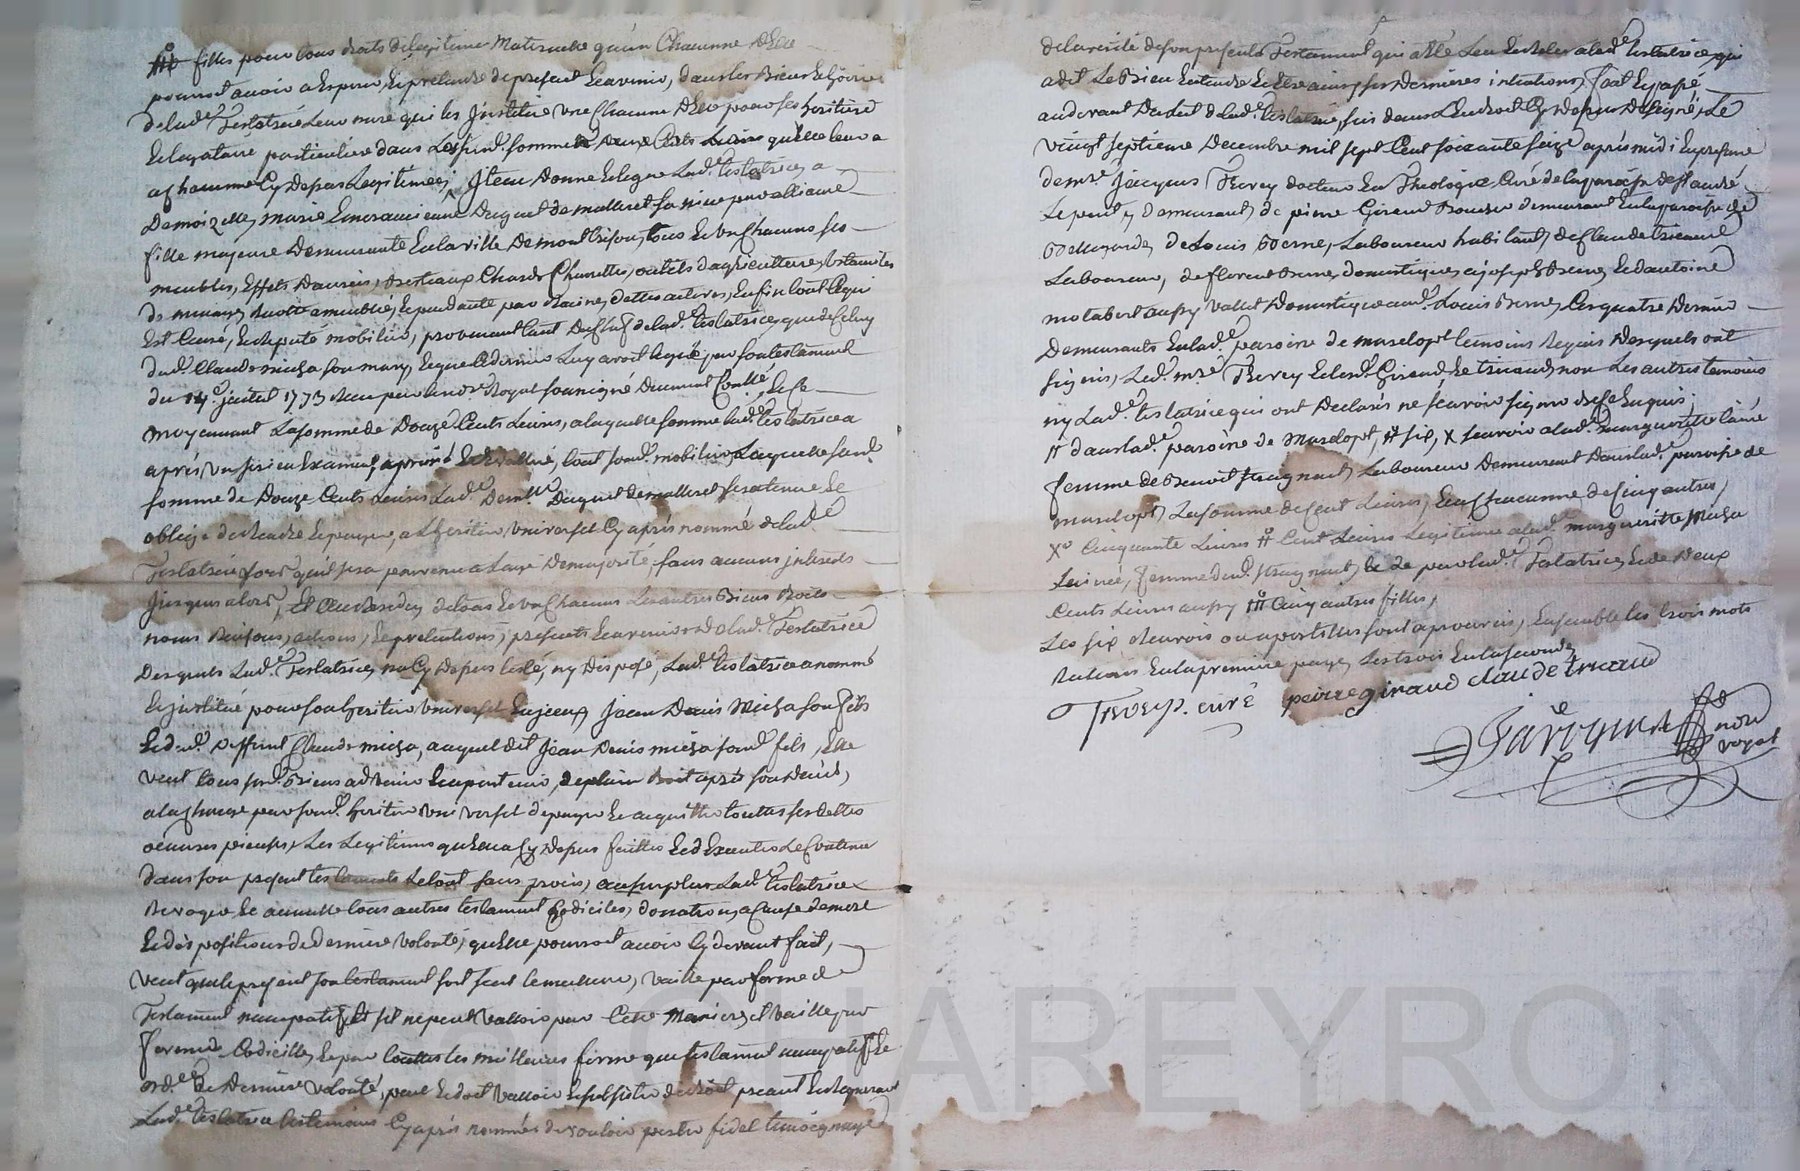 filles pour tous droits de legitime Maternelle qu'un Chacunne d'elle
pouroit avoir a Esperer, Et pretendre de present Et avenir, dans les Biens Et hoirie
de lad.e Testatrice Leur mere qui les Institue une Chacune d'elle pour ses heritiere
Et legataire particuliere dans lesd. somme de Deux Cents Livres qu'elle leur a
a chacunne Cy Depus Legitimées, Item Donne Et legue Lad.e testatrice, a
Demoizelle, marie Emerancienne Duguet de malleret sa niece par alliance
fille majeure Demeurante En la ville De montbrison, tous Et un chacuns ses
meubles, Effets Danrées, Bestiaux Chards Charettes, outils d'agriculture, Ustanciles
de menage, Recolte ameublie, Et pendante par Racine, dettes actives, Enfin tout Ce qui
Est Censé, Et deputé mobilier, provenant tant Du Chef de lad.e testatrice, que de Celuy
dud. Claude micha son mary, Lequel Ce dernier Luy avoit legué par son testament
du 14.e juillet 1773 Receu par le no.re Royal soussigné Duement Contllé, Et Ce
moyennant La somme de Douze Cents Livres, a laquelle somme lad.e testatrice a
après, un serieux Examen, aprétié Et Evallué, tout son d. mobilier, Laquelle sus d.
somme de Douze Cents Livres Lad.e Dem.lle Duguet de malleret sera tenue Et
obligée de Rendre Et payer, a L'heritier Universel Cy après nommé de lad.e
Testatrice lors qu'il sera parvenu a L'age De majorité, sans aucuns jnterets
Jusques alors, Et Au Residu de tous Et un Chacuns Les autres Biens Droits
noms Raisons, actions, Et pretentions, presents Et avenir de lad.e Testatrice
Desquels Lad.e Testatrice, na Cy Depus testé, ny Disposé, Lad.e testatrice a nommé
Et jnstitué pour son heritier Universel Jean Denis Micha son fils
Et dud. Deffunt Claude micha, auquel dit Jean Denis micha son d. fils, Elle
veut tous sesd. Biens advenir Et apartenir, de plain Droit après son Decès,
a la charge par son d. heritier Universel de payer Et acquitter touttes ses dettes
œuvres pieuses, Les Legitimes qu'elle a Cy Depus faittes Et d'Executer Le Contenu
dans son present testament Le tout sans proces, au surplus Lad.e testatrice
Revoque, Et annulle tous autres testament Codiciles, donation, a Cause de mort
Et dispositions de Derniere volonté, qu'elle pouroit avoir Cy devant fait,
veut que le present son testament soit seul Le meilleur, vaille par forme de
Testament nuncupatif, Et s'il ne peut valloir par Cette Maniere, Et vaille par
forme de Codicille, Et par touttes les meilleures forme que testament nuncupatif Et
ord.ce de Derniere volonté, peut Et doit valloir Et subsister de droit priant Et Requerant
Lad.e testatrice Les temoins Cy après nommés de vouloir porter fidel temoignage
de la verité de son present Testament qui a Eté Leu Et Releu a lad.e testatrice, qui
a dit Le Bien Entendre Et Estre ainsy ses Dernieres intentions, Fait Et passé
au devant Du lit de lad.e testatrice, sis dans L'endroit Cy Depus Designé, Le
vingt septieme Decembre mil sept Cent soixante seize après midi En presence
de m.re Jacques Thevey docteur En Theologie Curé de la paroisse de St andré
Le puit y demeurant, de pierre Giraud Demeurant En la paroisse de
de Louis Berne, Laboureur habitant, de Claude tricaud
Laboureur, de florent Brune, domestique, a joseph Brune, Et d'antoine
motabert aussy vallet Domestique aud. Louis Berne, Ces quatre Dernier
Demeurants En lad.e paroisse de marclopt temoins Requis Desquels ont
signés, Led. m.re Thevey Et lesd. Giraud, Et tricaud, non Les autres temoins
ny Lad.e testatrice qui ont Declarés ne sçavoir signer de ce Enquis.
# dans lad.e paroisse de Marclopt, # six, X sçavoir a lad.e margueritte l'ainé
femme de Benoit Laboureur Demeurant Dans lad.e paroisse de
marclopt, La somme de Cent Livres, Et a chacunne des Cinq autres,
X.e Cinquante Livres # Cent Livres Legitimée a lad.e margueritte Micha
l'ainée, femme dud. par lad.e Testatrice, Et de Deux
Cents Livres aussy # Cinq autres filles,
Les six Renvois ou apostilles sont aprouvées, Ensemble les trois mots
Raturés En la premiere page, Les trois En la seconde
Thevey. curé peirre giraud claude tricaud
not
royal